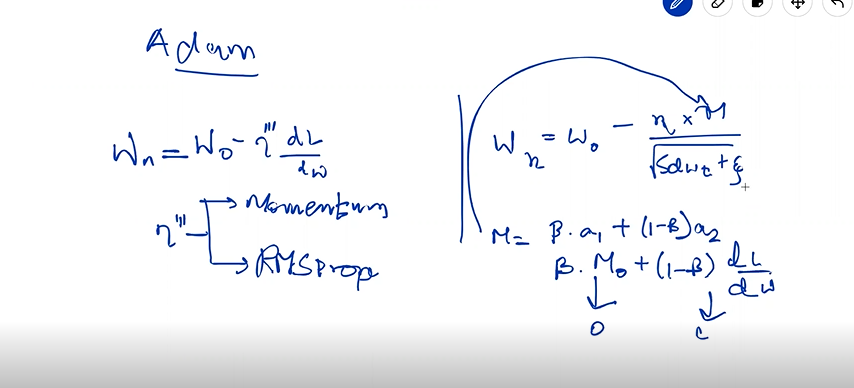 Adam
Wn = Wo - η''' dL/dw
η''' → Momentum
→ RMSprop
Wn = Wo - η × M / √Sdwt + ξ
M = β . a1 + (1-β) a2
β . Mo + (1-β) dL/dw
↓ ↓
0 c